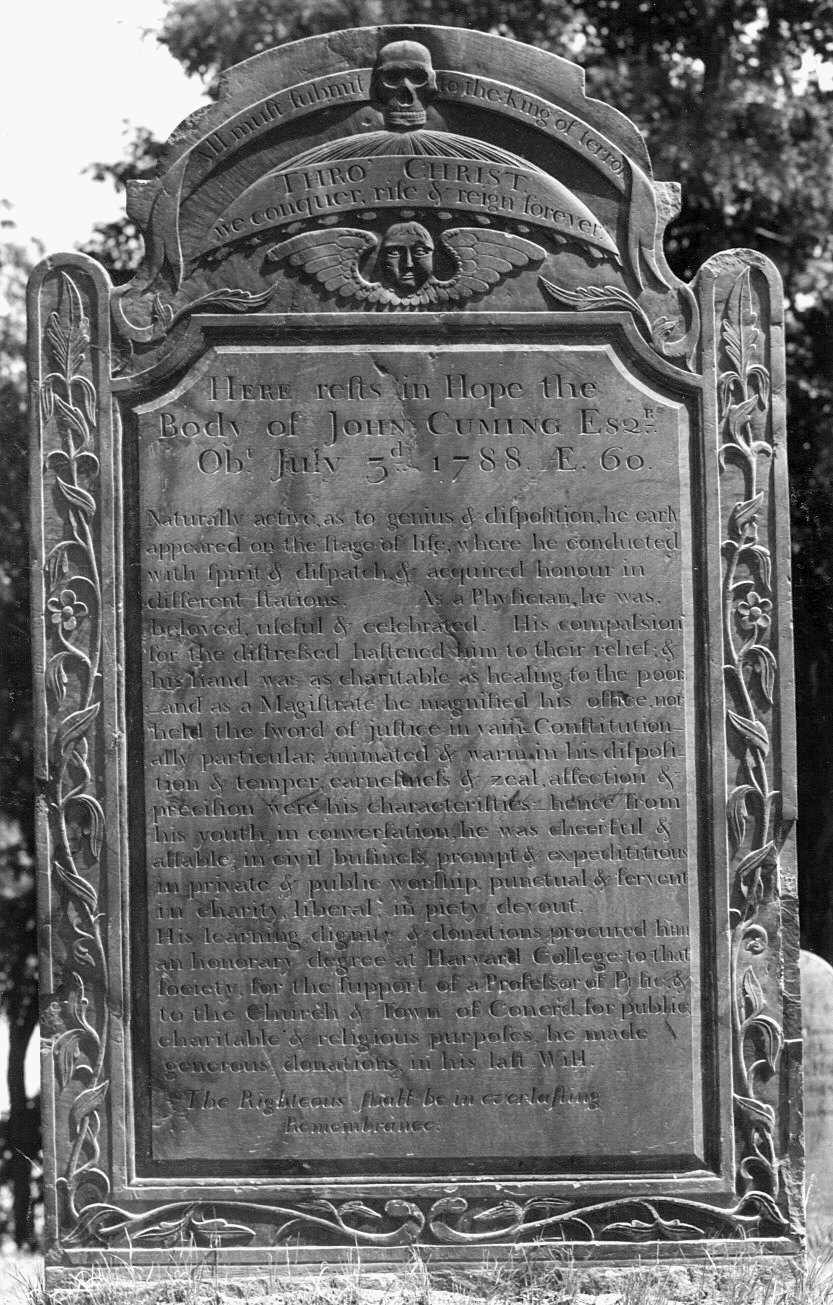 All muſt ſubmit to the king of terrors
THRO' CHRIST
we conquer, riſe & reign forever
HERE reſts in Hope the
Body of JOHN CUMING ESQR.
Obt. July 3d. 1788. Æ. 60.
Naturally active, as to genius & diſpoſition, he early
appeared on the ſtage of life, where he conducted
with ſpirit & diſpatch, & acquired honour in
different ſtations. As a Phyſician, he was,
beloved, uſeful & celebrated. His compaſsion
for the diſtreſsed haſtened him to their relief; &
his hand was as charitable as healing to the poor
and as a Magiſtrate he magnified his office, nor
held the ſword of juſtice in vain. Conſtitution-
ally particular, animated & warm in his diſpoſi
tion & temper, earneſtneſs & zeal, affection &
preciſion were his characteriſtics: hence from
his youth, in converſation, he was cheerful &
affable; in civil buſineſs, prompt & expedititious
in private & public worſhip, punctual & fervent
in charity, liberal; in piety devout.
His learning, dignity & donations procured him
an honorary degree at Harvard College: to that
ſociety, for the ſupport of a Profeſsor of Pyſic, &
to the Church & Town of Concrd, for public,
charitable & religious purpoſes, he made
generous donations, in his laſt Will.
The Righteous ſhall be in everlaſting
Remembrance.